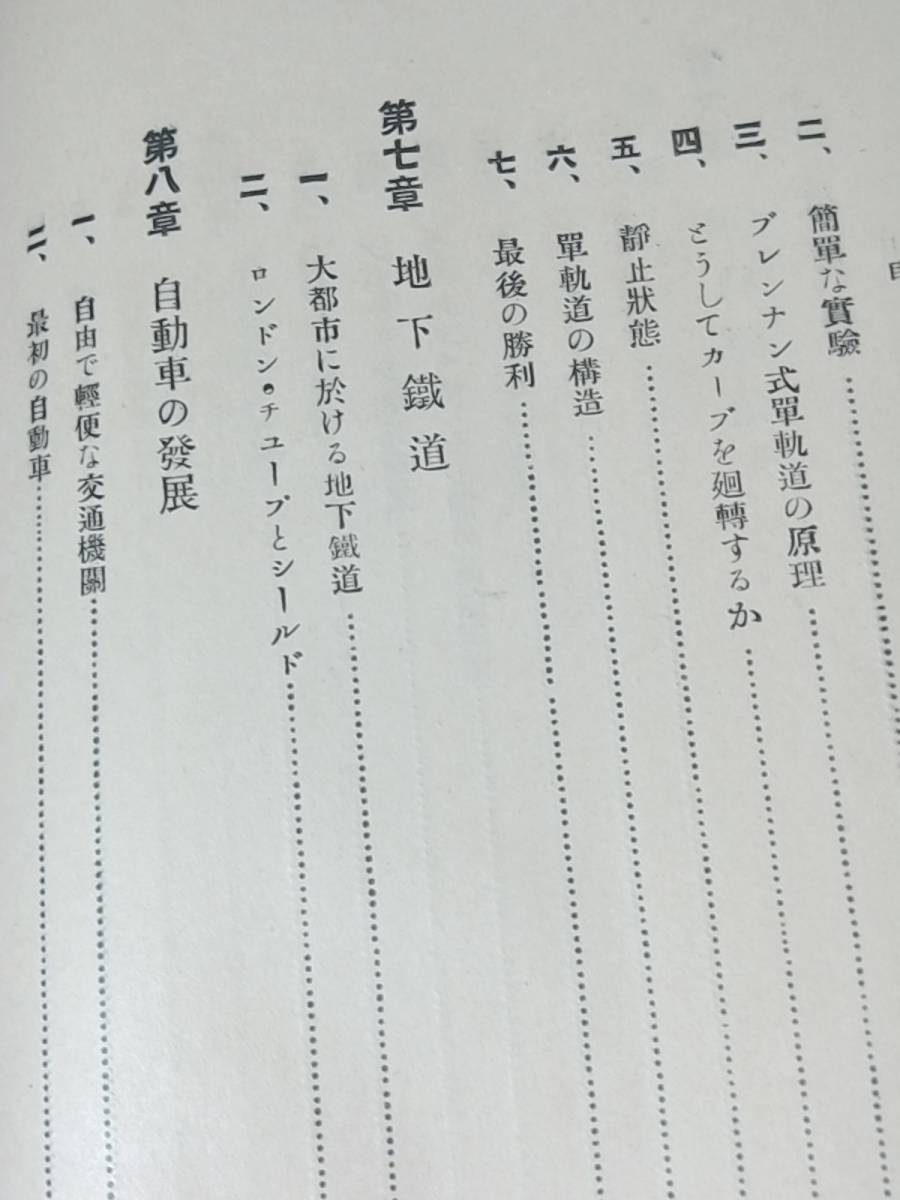 二、簡單な實驗
三、ブレンナン式單軌道の原理
四、どうしてカーブを廻轉するか
五、靜止狀態
六、單軌道の構造
七、最後の勝利
第七章 地下鐵道
一、大都市に於ける地下鐵道
二、ロンドン・チユーブとシールド
第八章 自動車の發展
一、自由で輕便な交通機關
二、最初の自動車